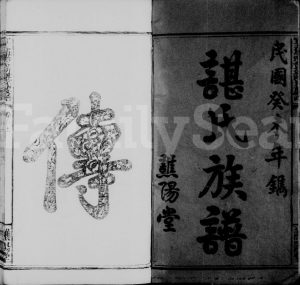 民國癸未年鐫
諶氏族譜
譙陽堂
傳
FamilySear